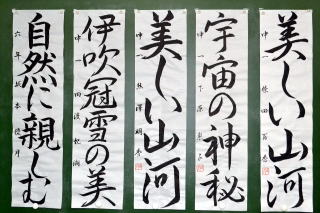 美しい山河
中一
宇宙の神秘
中一
美しい山河
中一
伊吹冠雪の美
中一
自然に親しむ
六年